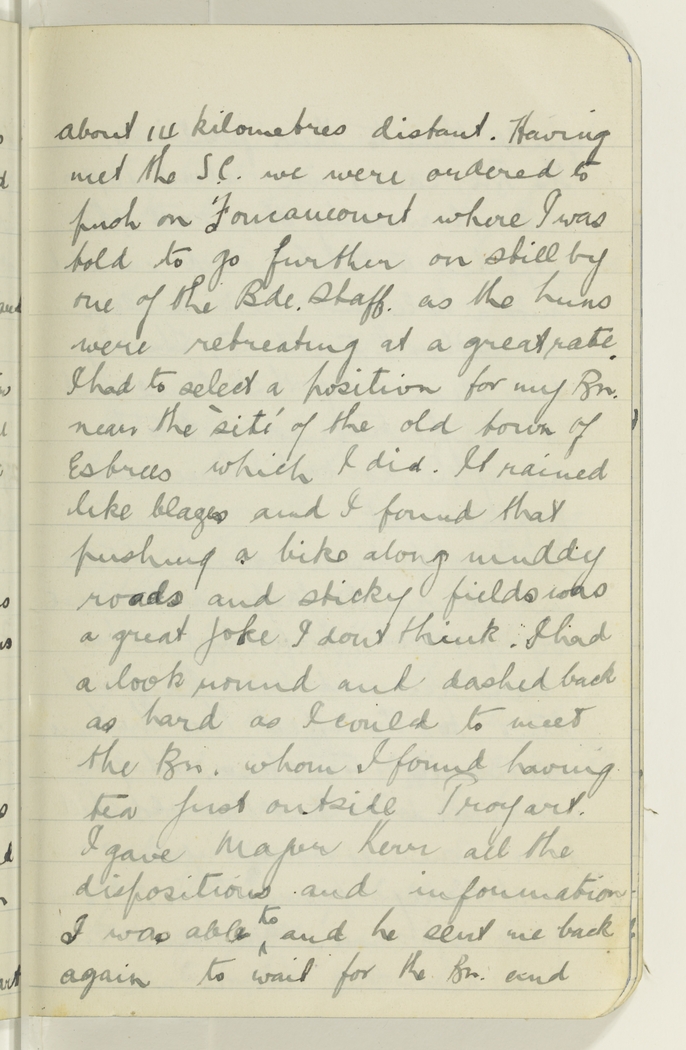 about 14 kilometres distant. Having
met the S.C. we were ordered to
push on Foucaucourt where I was
told to go further on still by
one of the Bde. Staff. as the huns
were retreating at a great rate.
I had to select a position for my Bn.
near the 'site' of the old town of
Estrees which I did. It rained
like blazes and I found that
pushing a bike along muddy
roads and sticky fields was
a great joke I dont think. I had
a look round and dashed back
as hard as I could to meet
the Bn. whom I found having
tea just outside Proyart.
I gave Major Kerr all the
dispositions and information
I was able to, and he sent me back
again to wait for the Bn. and